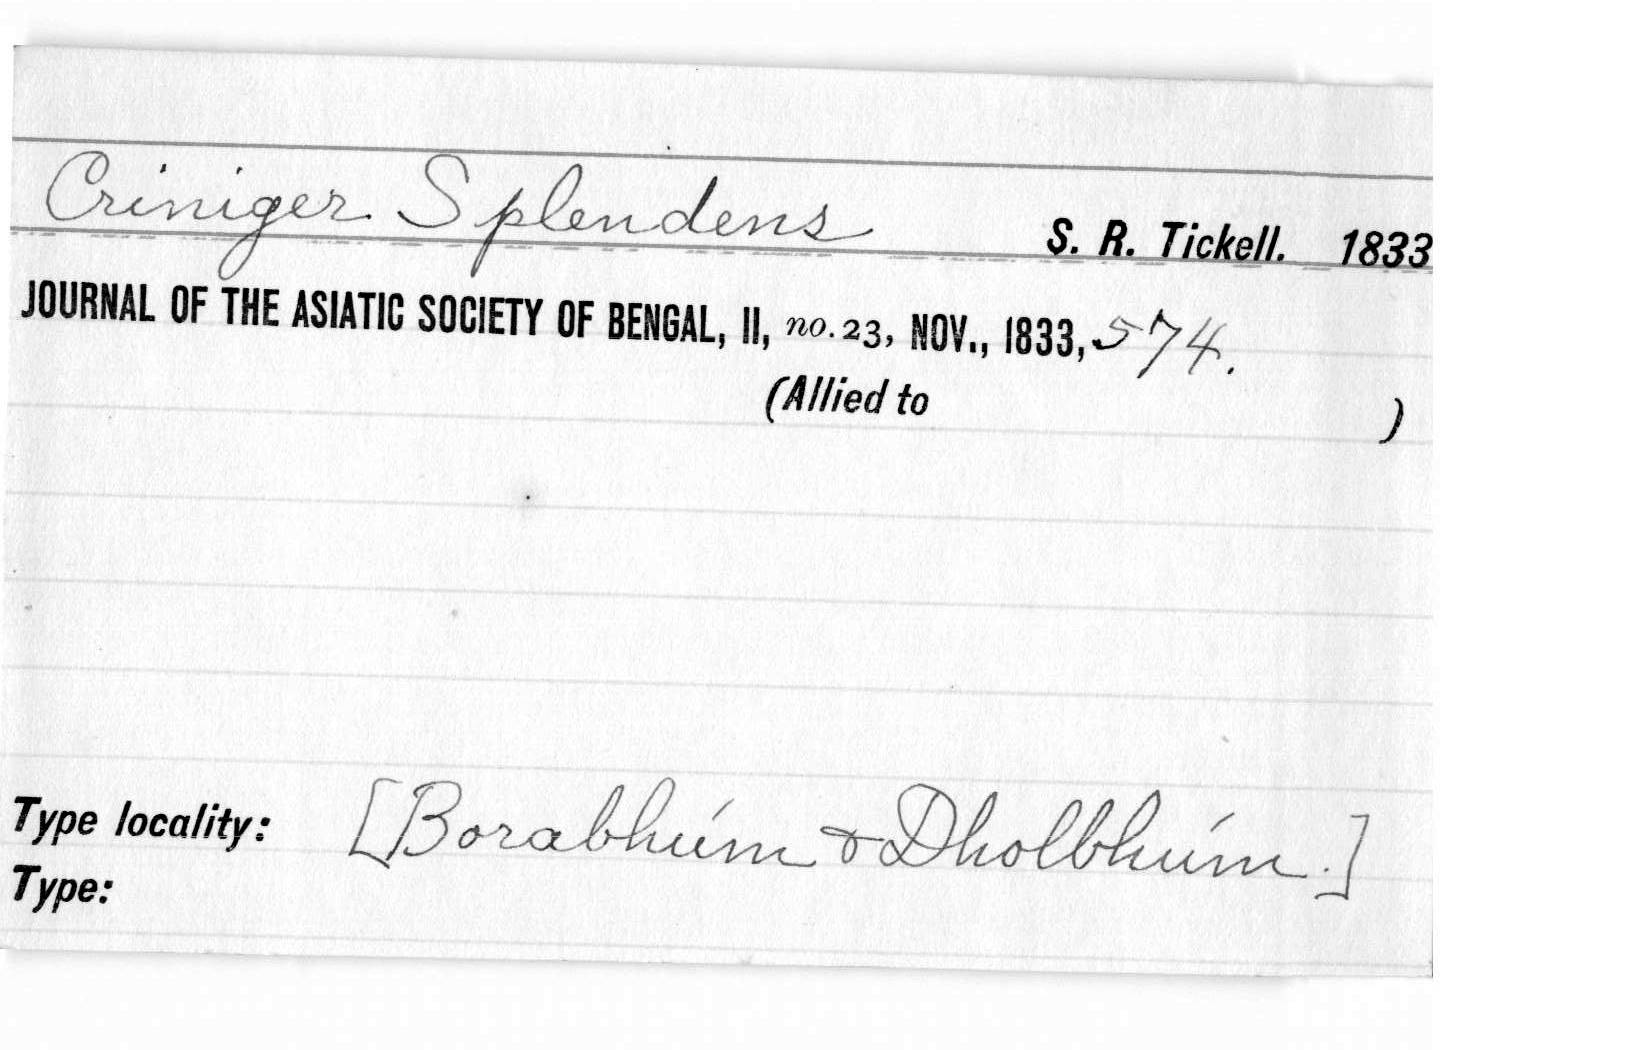 Criniger Splendens S. R. Tickell. 1833
JOURNAL OF THE ASIATIC SOCIETY OF BENGAL, II, no. 23, NOV., 1833, 574.
(Allied to )
Type locality: [Borabhúm & Dholbhúm.]
Type: